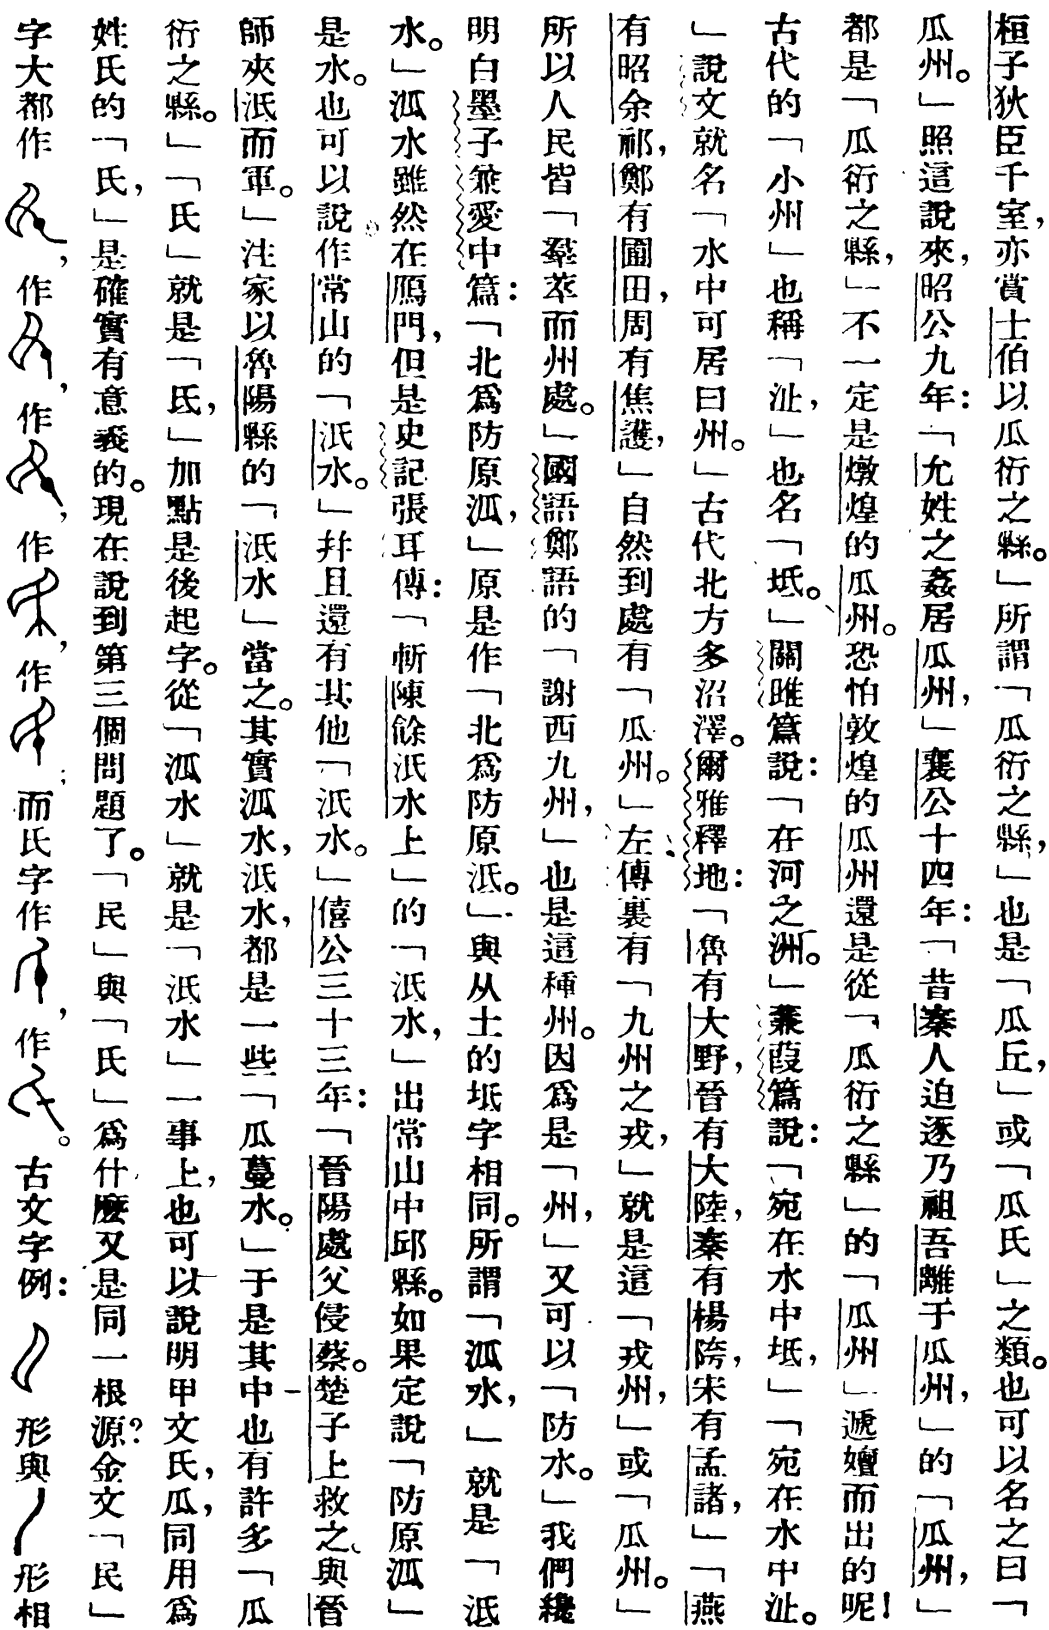 桓子狄臣千室，亦賞士伯以瓜衍之縣。」所謂「瓜衍之縣，」也是「瓜丘，」或「瓜氏」之類。也可以名之曰「
瓜州。」照這說來，昭公九年：「允姓之姦居瓜州，」襄公十四年：「昔秦人迫逐乃祖吾離于瓜州，」的「瓜州，」
都是「瓜衍之縣，」不一定是燉煌的瓜州。恐怕敦煌的瓜州還是從「瓜衍之縣」的「瓜州」遞嬗而出的呢！
古代的「小州」也稱「沚，」也名「坻。」關雎篇說：「在河之洲。」蒹葭篇說：「宛在水中坻，」「宛在水中沚。
」說文就名「水中可居曰州。」古代北方多沼澤。爾雅釋地：「魯有大野，晉有大陸，秦有楊陓，宋有孟諸，」「燕
有昭余祁，鄭有圃田，周有焦護，」自然到處有「瓜州。」左傳裏有「九州之戎，」就是這「戎州，」或「瓜州。」
所以人民皆「羣萃而州處。」國語鄭語的「謝西九州，」也是這種州。因爲是「州，」又可以「防水。」我們纔
明白墨子兼愛中篇：「北爲防原泒，」原是作「北爲防原泜。」與从土的坻字相同。所謂「泒水，」就是「泜
水。」泒水雖然在鴈門，但是史記張耳傳：「斬陳餘泜水上」的「泜水，」出常山中邱縣。如果定說「防原泒」
是水。也可以說作常山的「泜水。」幷且還有其他「泜水。」僖公三十三年：「晉陽處父侵蔡。楚子上救之、與晉
師夾泜而軍。」注家以魯陽縣的「泜水」當之。其實泒水，泜水，都是一些「瓜蔓水。」于是其中也有許多「瓜
衍之縣。」「氏」就是「氐，」加點是後起字。從「泒水」就是「泜水」一事上，也可以說明甲文氏，瓜，同用爲
姓氏的「氏，」是確實有意義的。現在說到第三個問題了。「民」與「氏」爲什麼又是同一根源？金文「民」
字大都作，作，作，作，作；而氏字作，作。古文字例：形與形相